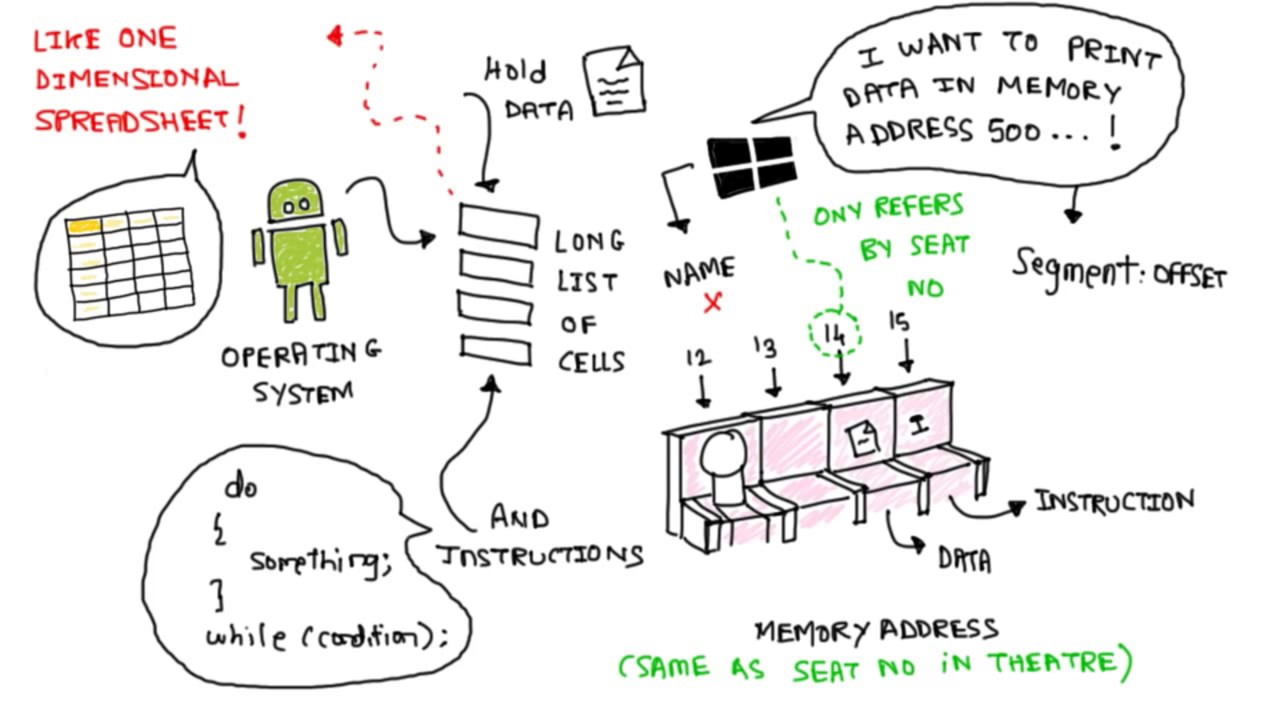 LIKE ONE
DIMENSIONAL
SPREADSHEET!
Hold
DATA
I WANT TO PRINT
DATA IN MEMORY
ADDRESS 500 ... !
LONG
LIST
OF
CELLS
OPERATING
SYSTEM
NAME
X
ONY REFERS
BY SEAT
NO
Segment: OFFSET
12
13
14
15
I
do
{
something;
}
while (condition);
AND
INSTRUCTIONS
INSTRUCTION
DATA
MEMORY ADDRESS
(SAME AS SEAT NO iN THEATRE)